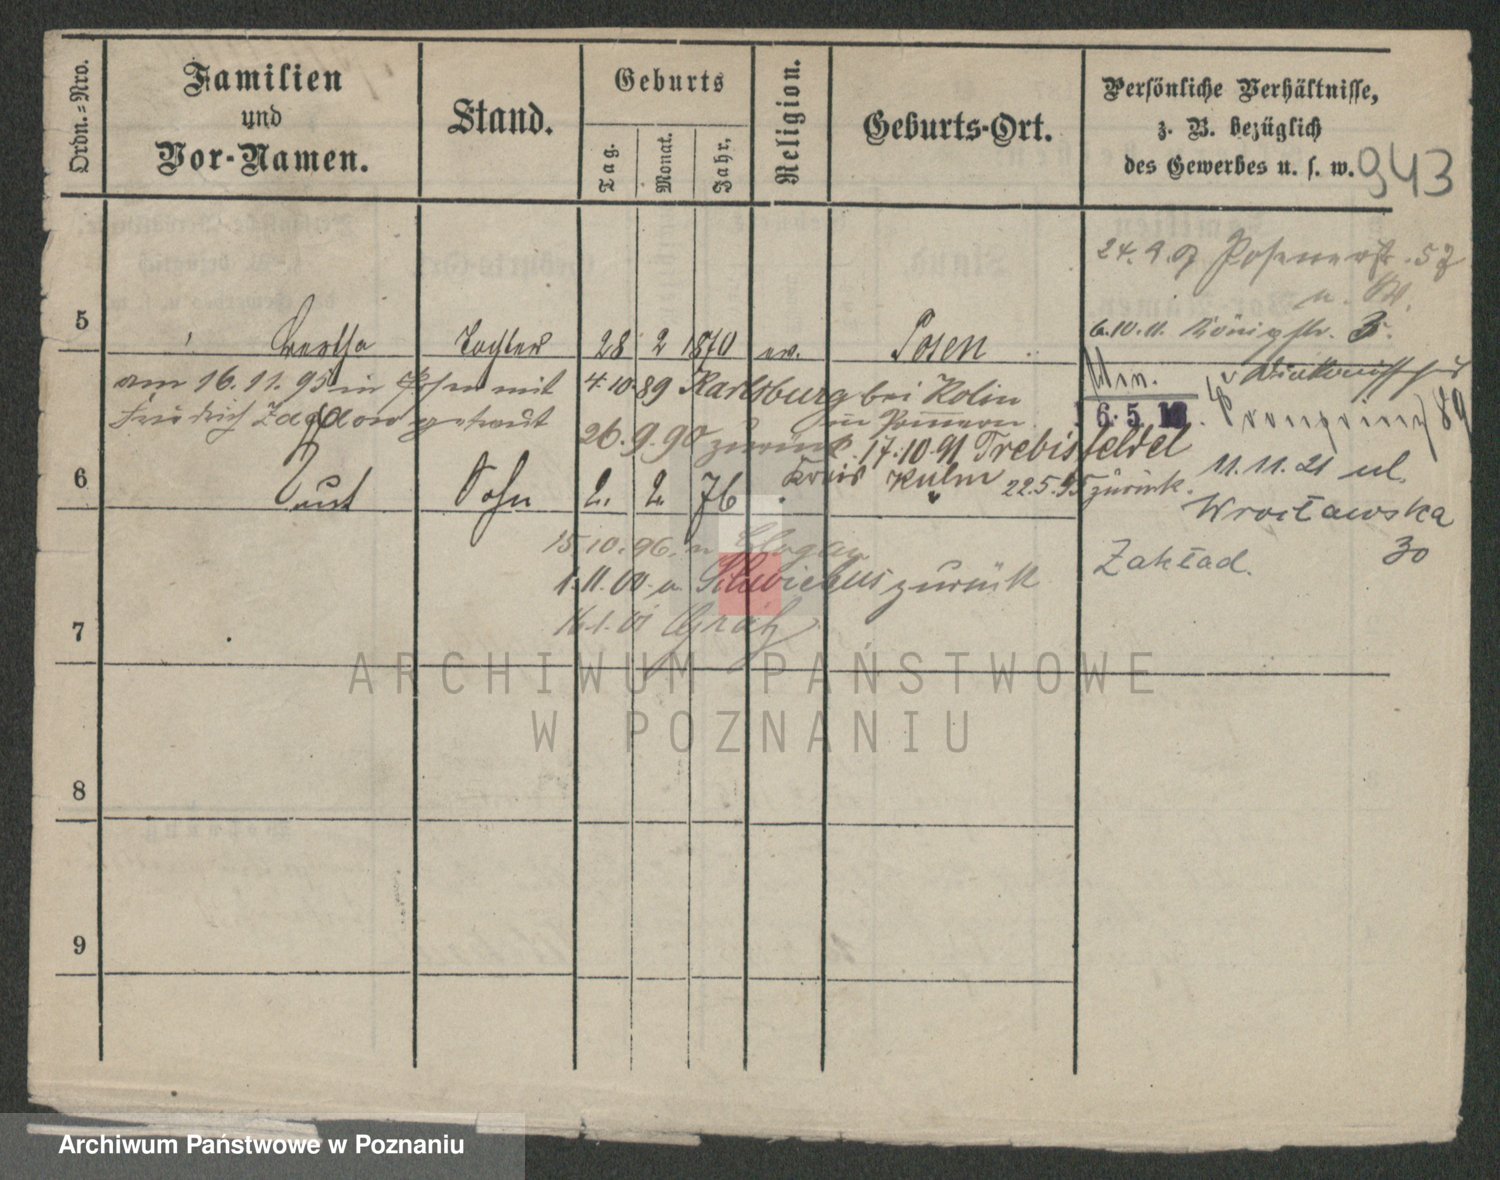 Ordn.-Nro.
Familien
und
Vor-Namen.
Stand.
Geburts
Tag.
Monat.
Jahr.
Religion.
Geburts-Ort.
Persönliche Verhältnisse,
z. B. bezüglich
des Gewerbes u. s. w.
943
24.9.07 Posenerstr. 52
6.10.11. Königstr. 3.
5 Bertha Tochter 28 2 1870 ev. Posen
am 16.11.95 in Posen mit
Friedrich getraut
4.10.89 Karlsburg bei Kolin
in Pommern
26.9.90 zurück. 17.10.91 Trebisfelde
Kreis Kulm 22.5.95 zurück.
6.5.
89
11.11.21 ul.
Wrocławska
30
Zakład.
6 Kurt Sohn 2. 2. 76
15.10.96. n Glogau
1.11.00. a. zurück
16.1.01 Grätz
7
8
9
ARCHIWUM PAŃSTWOWE
W POZNANIU
Archiwum Państwowe w Poznaniu